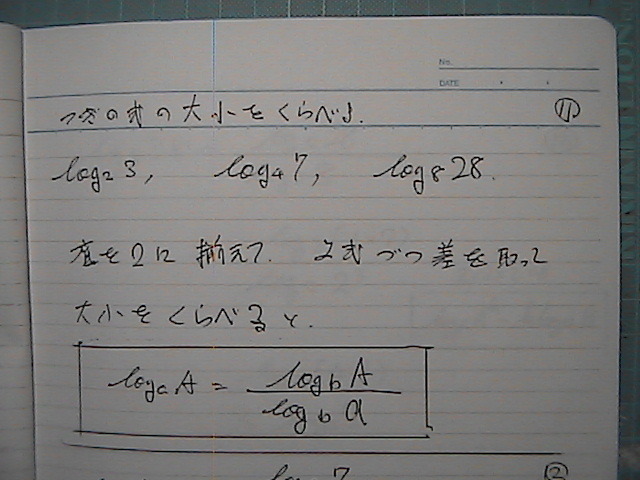 No.
DATE
つぎの式の大小をくらべよ. ⑪
log₂3, log₄7, log₈28.
底を2に揃えて. 2式づつ差を取って
大小をくらべると.
logₐA = log_b A / log_b a
log 7 ②